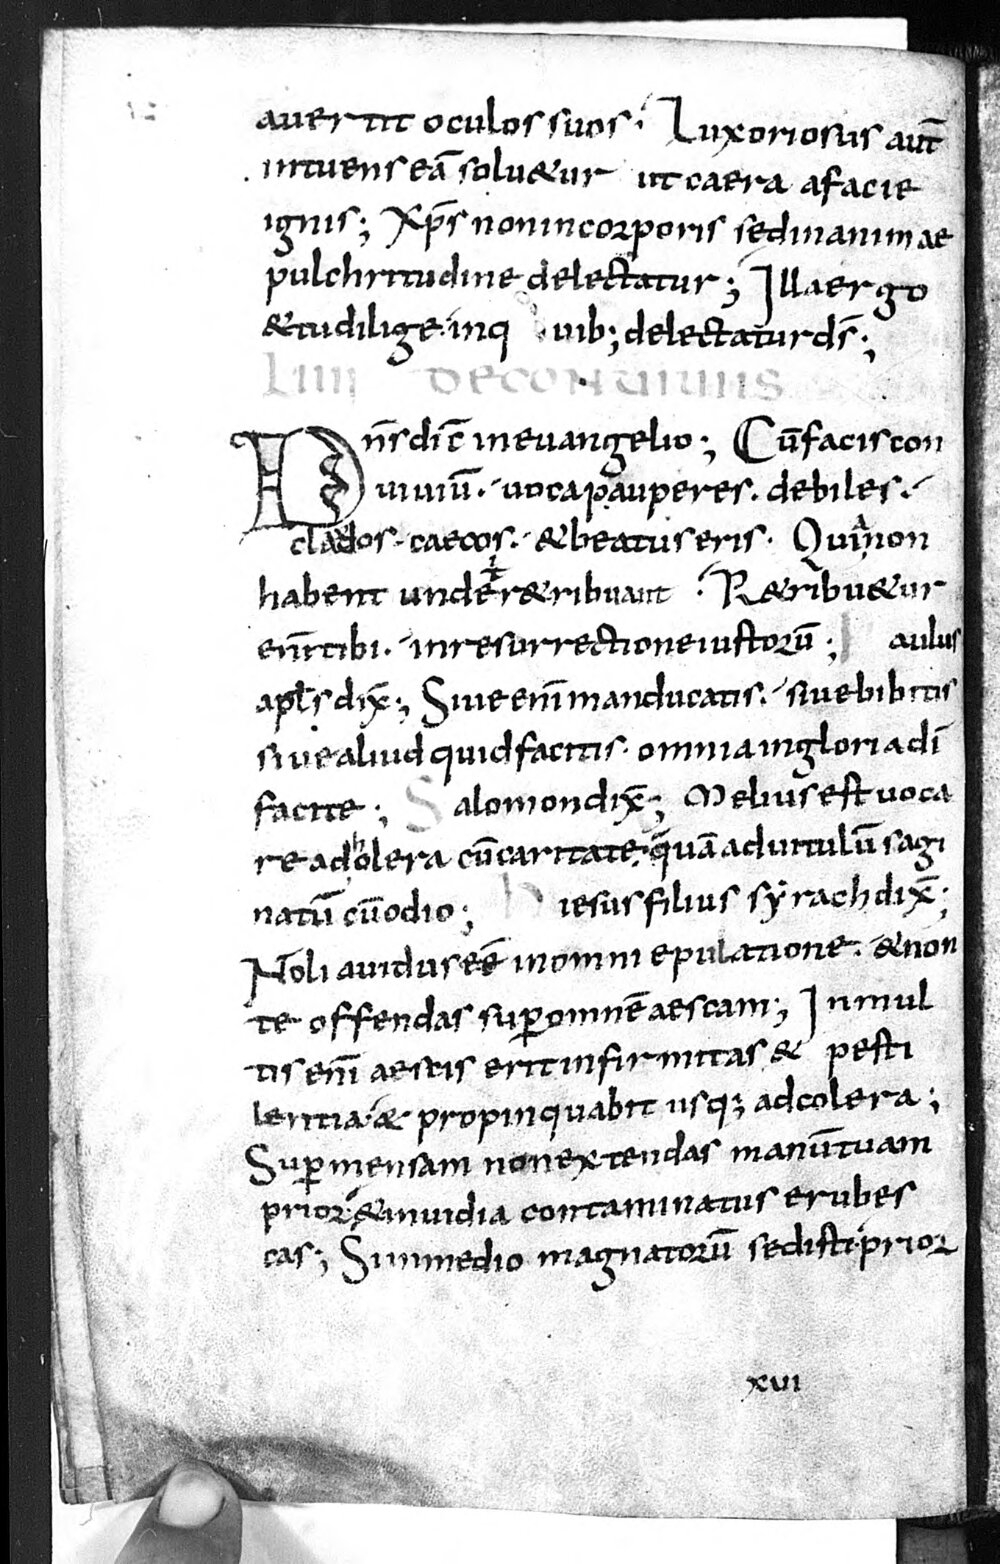 avertit oculos suos· Luxoriosus aut̄
intuens eā solu&ur ut caera afacie
ignis; xp̄s nonincorporis sedinanimae
pulchritudine delectatur; Illaergo
&tudilige· inq uib; delectaturds̄·;
LIIII DECONUIUIIS
Dn̄s dic̄ inevangelio; Cū faciscon
uiuiū· uocapauperes· debiles·
clados· caecos· &beatuseris· Quianon
habent under&ribuant· R&ribu&ur
enīmtibi· inresurrectioneiustorū; Paulus
apl̄s dix̄; Siue enī manducatis· siuebibitis
siuealiudquidfacitis· omniaingloriadī
facite; Salomondix̄; Meliusestuoca
re adholera cūcaritate· quā aduitulū sagi
natū cūodio; hiesusfilius syrachdix̄;
Noli auidusee̅ inomni epulatione· &non
te offendas sup̱omnē aescam; Inmul
tis enī aescis eritinfirmitas & pesti
lentia· & propinquabit usq; adcolera;
Sup̱mensam nonextendas manūtuam
prior· &inuidia contaminatus erubes
cas; Sinmedio magnatorū sedisti· prior
xvi